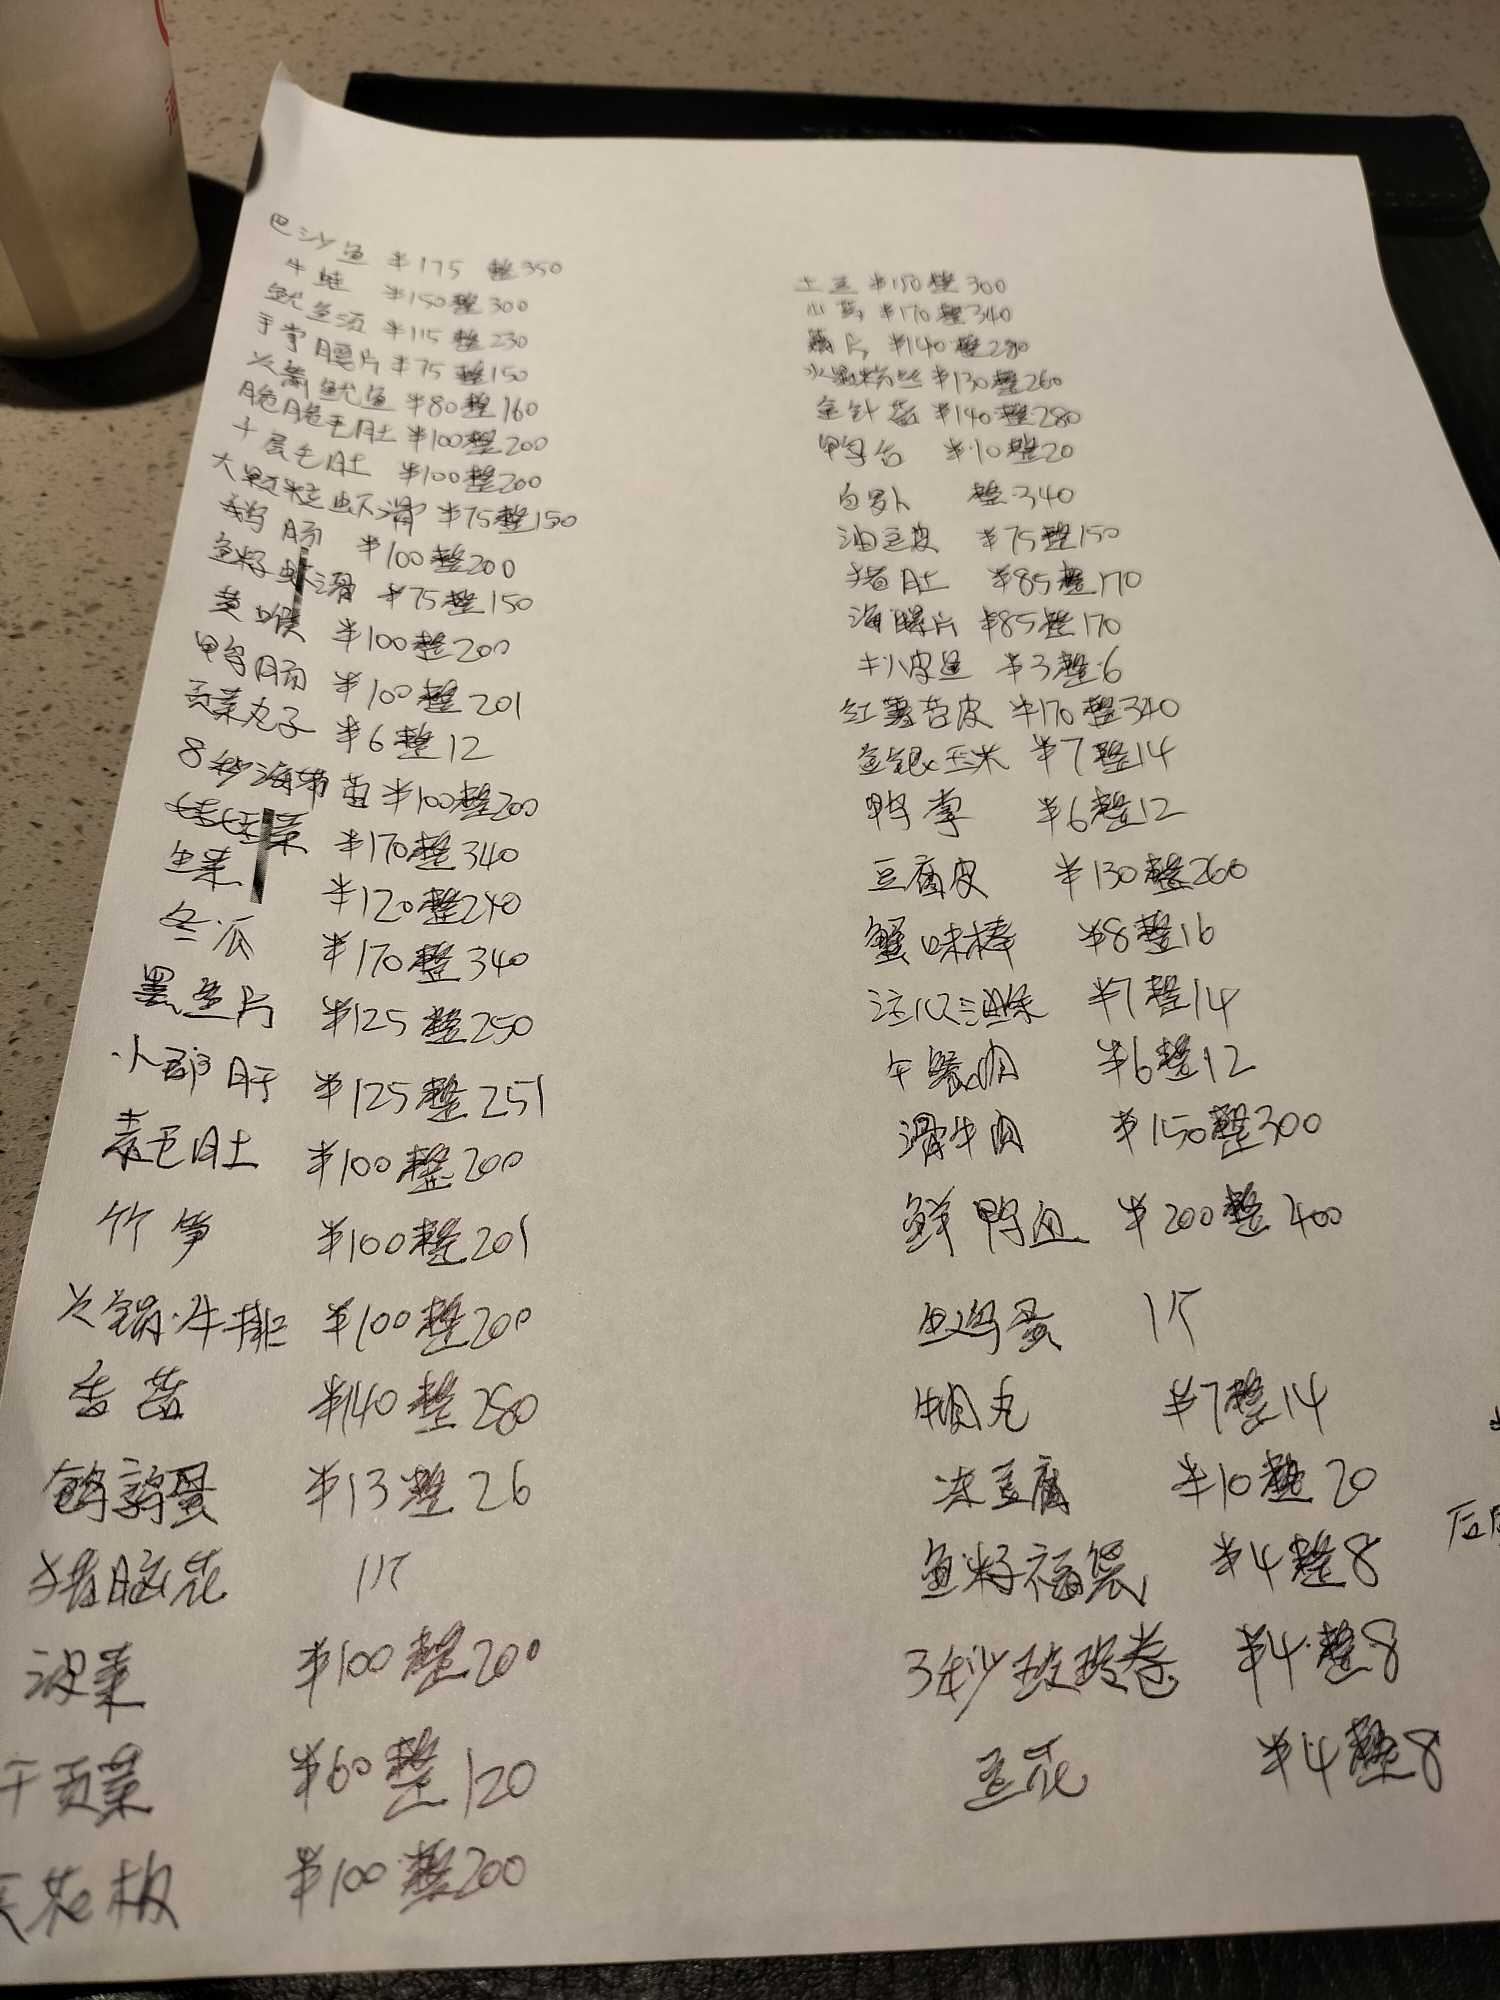 巴沙鱼 半175 整350
牛蛙 半150整300
鱿鱼须 半115 整230
手掌腰片 半75 整150
火箭鱿鱼 半80整160
脆脆毛肚 半100整200
千层毛肚 半100整200
大颗粒虾滑 半75整150
鹅肠 半100整200
鱼籽虾滑 半75整150
黄喉 半100整200
鸭肠 半100整201
贡菜丸子 半6整12
8秒海带苗 半100整200
半170整340
生菜 半120整240
冬瓜 半170整340
黑鱼片 半125整250
小郡肝 半125整251
素毛肚 半100整200
竹笋 半100整201
火锅牛排 半100整200
香菇 半140整280
鹌鹑蛋 半13整26
猪脑花 1个
菠菜 半100整200
干贡菜 半60整120
天花板 半100整200
土豆 半150整300
半170整340
藕片 半140整280
水晶粉丝 半130整260
金针菇 半140整280
鸭舌 半10整20
白萝卜 整340
油豆皮 半75整150
猪肚 半85整170
海螺片 半85整170
半3整6
红薯苕皮 半170整340
半7整14
鸭掌 半6整12
豆腐皮 半130整260
蟹味棒 半8整16
半7整14
午餐肉 半6整12
滑牛肉 半150整300
鲜鸭血 半200整400
鸡蛋 1个
牛肉丸 半7整14
冻豆腐 半10整20
鱼籽福袋 半4整8
3秒玫玲卷 半4整8
豆花 半4整8
后